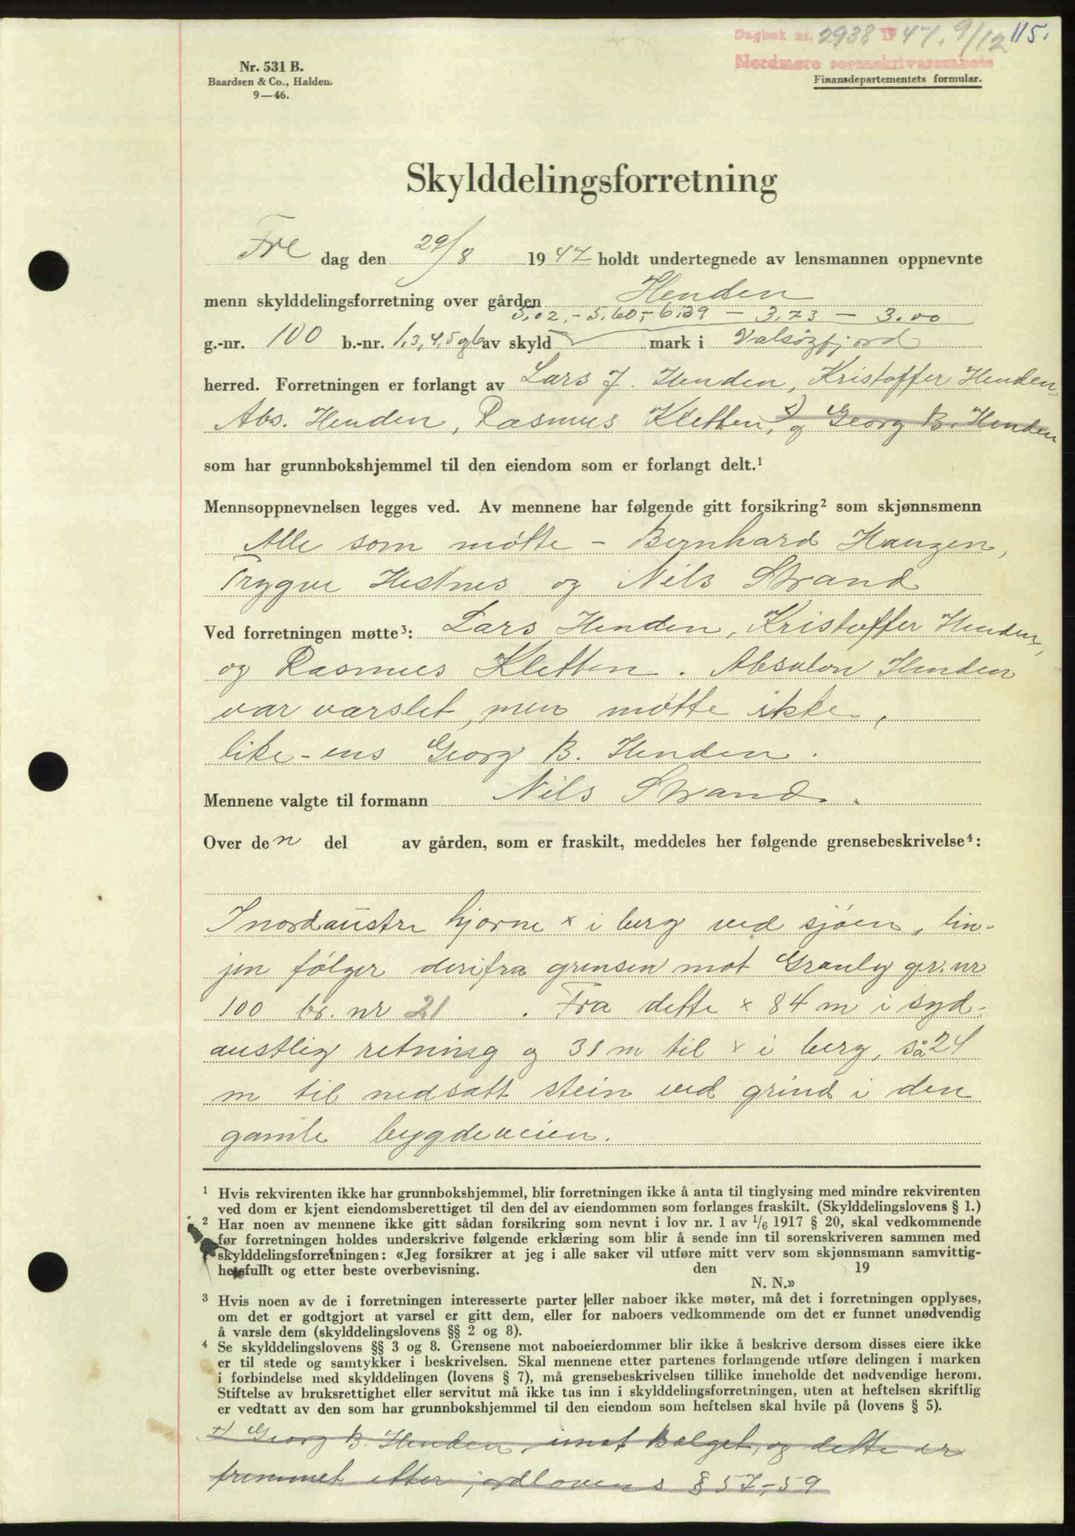 Dagbok nr. 2938 1947. 9/12 115.
Nordmøre sorenskriverembete
Nr. 531 B.
Baardsen & Co., Halden.
9—46.
Finansdepartementets formular.
Skylddelingsforretning
Fre dag den 29/8 1947 holdt undertegnede av lensmannen oppnevnte
menn skylddelingsforretning over gården Henden
5,60,- 6.39 — 3.73 — 3.00
g.-nr. 100 b.-nr. 1,3,4,5 og 6 av skyld mark i Valsøyfjord
herred. Forretningen er forlangt av Lars J. Henden, Kristoffer Henden,
Abs. Henden, Rasmus Kletten, x) og Georg B. Henden
som har grunnbokshjemmel til den eiendom som er forlangt delt.¹
Mennsoppnevnelsen legges ved. Av mennene har følgende gitt forsikring² som skjønnsmenn
Alle som møtte – Bernhard Haugen,
Trygve Hestnes og Nils Strand
Ved forretningen møtte³: Lars Henden, Kristoffer Henden,
og Rasmus Kletten. Absalon Henden
var varslet, men møtte ikke,
like-ens Georg B. Henden.
Mennene valgte til formann Nils Strand.
Over den del av gården, som er fraskilt, meddeles her følgende grensebeskrivelse⁴:
I nordaustre hjørne x i berg ved sjøen, lin-
jen følger derifra grensen mot Granly gr. nr
100 br. nr 21. Fra dette x 84 m i syd-
austlig retning og 31 m til x i berg, så 24
m til nedsatt stein ved grind i den
gamle bygdeveien.
¹ Hvis rekvirenten ikke har grunnbokshjemmel, blir forretningen ikke å anta til tinglysing med mindre rekvirenten
ved dom er kjent eiendomsberettiget til den del av eiendommen som forlanges fraskilt. (Skylddelingslovens § 1.)
² Har noen av mennene ikke gitt sådan forsikring som nevnt i lov nr. 1 av 1/6 1917 § 20, skal vedkommende
før forretningen holdes underskrive følgende erklæring som blir å sende inn til sorenskriveren sammen med
skylddelingsforretningen: «Jeg forsikrer at jeg i alle saker vil utføre mitt verv som skjønnsmann samvittig-
hetsfullt og etter beste overbevisning. den 19
N. N.»
³ Hvis noen av de i forretningen interesserte parter eller naboer ikke møter, må det i forretningen opplyses,
om det er godtgjort at varsel er gitt dem, eller for naboers vedkommende om det er funnet unødvendig
å varsle dem (skylddelingslovens §§ 2 og 8).
⁴ Se skylddelingslovens §§ 3 og 8. Grensene mot naboeierdommer blir ikke å beskrive dersom disses eiere ikke
er til stede og samtykker i beskrivelsen. Skal mennene etter partenes forlangende utføre delingen i marken
i forbindelse med skylddelingen (lovens § 7), må grensebeskrivelsen tillike inneholde det nødvendige herom.
Stiftelse av bruksrettighet eller servitut må ikke tas inn i skylddelingsforretningen, uten at heftelsen skriftlig
er vedtatt av den som har grunnbokshjemmel til den eiendom som heftelsen skal hvile på (lovens § 5).
x) Georg B. Henden, imot salget, og dette er
fremmet etter jordlovens § 57,-59